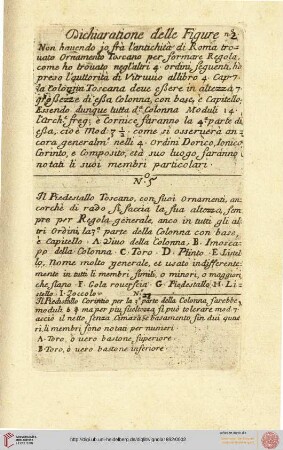 Dichiaratione delle Figure nº2
Non hauendo jo frà l'antichità di Roma tro=
uato Ornamento Toscano per formare Regola,
come ho trouato negl'altri 4 ordini, seguenti, hò
preso l'auttorità di Vitruuio allibro 4 Cap? 7
la Colonna Toscana deue essere in altezza 7
grossezze di essa Colonna, con base, è Capitello,
Essendo dunque tutta dª Colonna Moduli 14
l'arch: freg: è Cornice saranno la 4ª parte di
essa, cioè Mod: 3 1/2. come si osseruerà an=
cora generalmte nelli 4 Ordini Dorico, Ionico
Corinto, e Composito, età suo luogo saranno
notati li suoi membri particolari.
Nº5
Il Piedestallo Toscano, con suoi ornamenti, an=
corchè di rado si faccia la sua altezza, sem
pre per Regola generale, anco in tutti gli al
tri Ordini, la 3ª parte della Colonna con base,
è Capitello. A Viuo della Colonna, B. Imosca=
po della Colonna C. Toro. D. Plinto E. Listel=
lo, Nome molto generale, et usato indifferente
mente in tutti li membri simili, o minori, o maggiori
che siano F. Gola rouescia G. Piedestallo H. Li=
stello I. Zoccolo
Il Piedistallo Corintio per la 3ª parte della Colonna, sarebbe,
moduli 6 2/3 ma per piu sueltezza si può tolerare mod. 7
acciò il netto senza Cimasa, e basamento, sin dui quat
ri, li membri sono notati per numeri
A. Toro, ò uero bastone superiore
B. Toro, ò uero bastone inferiore